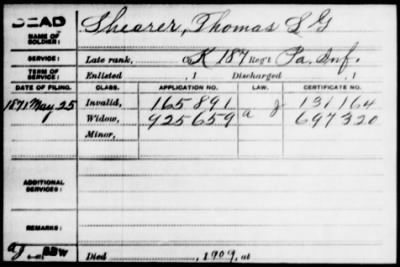 DEAD
NAME OF SOLDIER: Shearer, Thomas S G
SERVICE: Late rank, Co. K 187 Reg't Pa. Inf.
TERM OF SERVICE: Enlisted , 1 Discharged , 1
DATE OF FILING. CLASS. APPLICATION NO. LAW. CERTIFICATE NO.
1871 May 25 Invalid, 165891 131164
Widow, 925659 a 697320
Minor,
ADDITIONAL SERVICES:
REMARKS:
Died , 1909, at